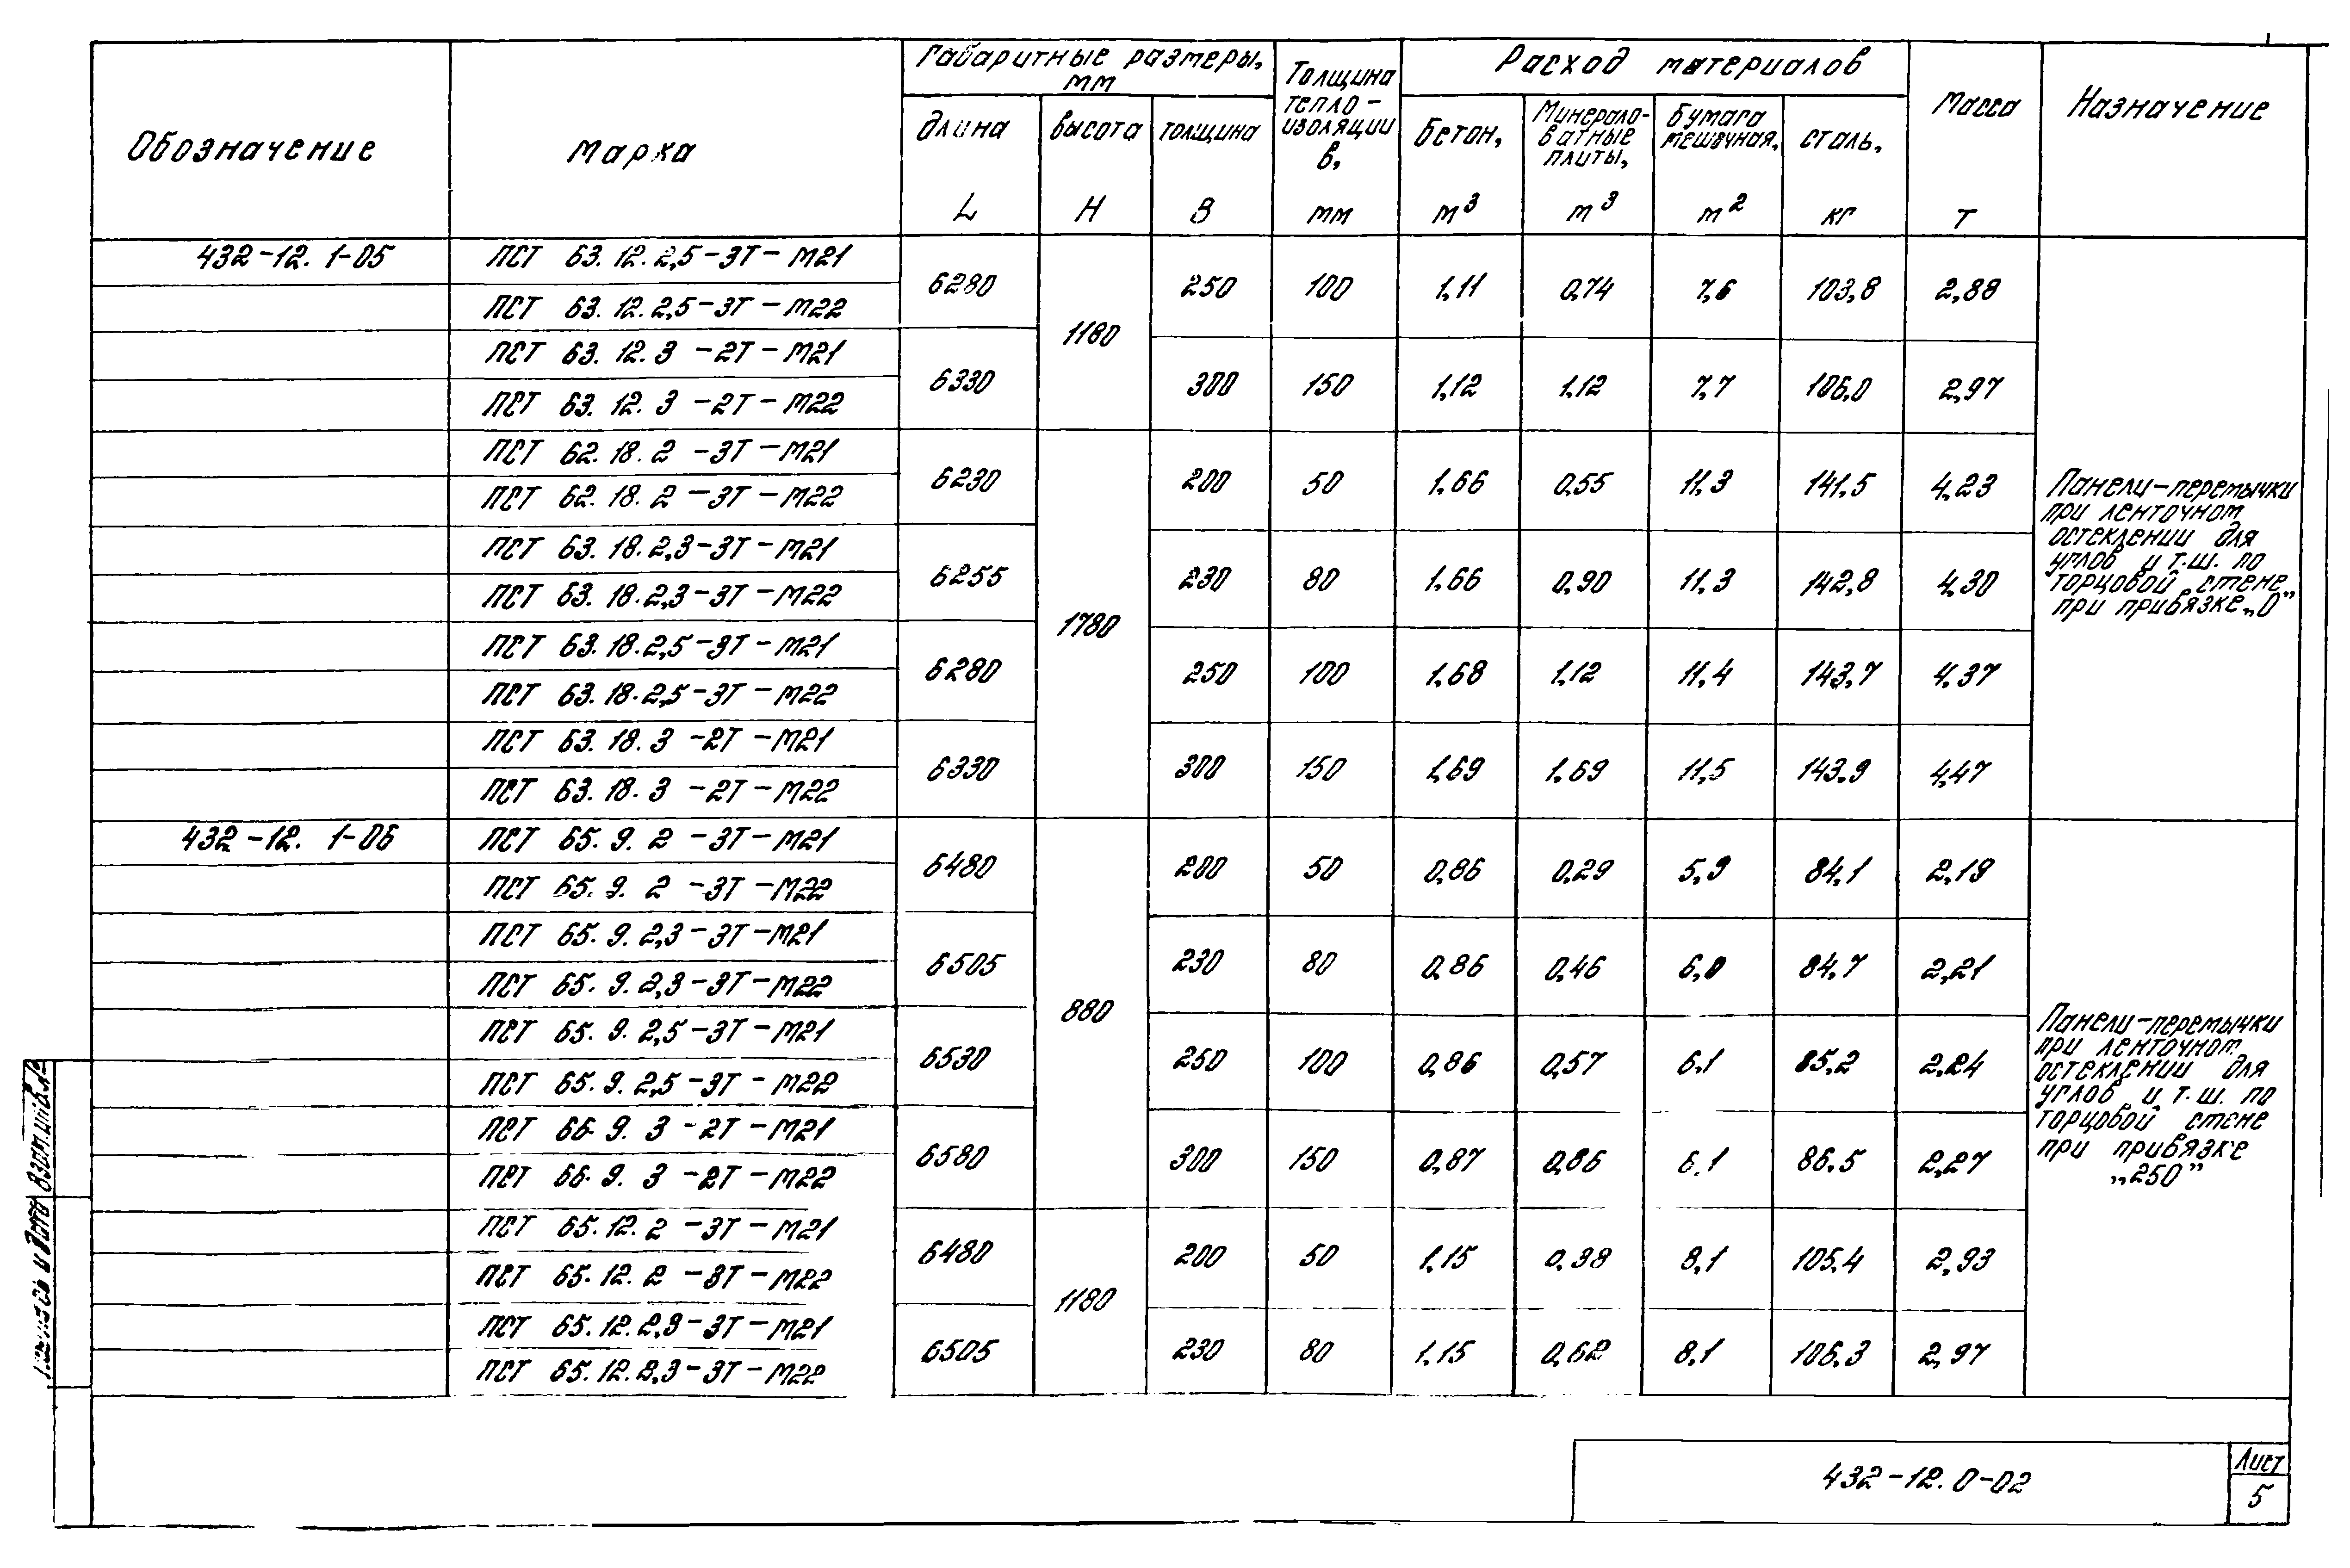 Обозначение
Марка
Габаритные размеры, мм
длина L
высота H
толщина B
Толщина тепло- изоляции в, мм
Расход материалов
Бетон, м³
Минерало- ватные плиты, м³
Бумага мешочная, м²
сталь, кг
Масса т
Назначение
432-12. 1-05 ПСТ 63.12.2,5-3Т-М21
6280 1180 250 100 1,11 0,74 7,6 103,8 2,88
ПСТ 63.12.2,5-3Т-М22
ПСТ 63.12.3 -2Т-М21
6330 300 150 1,12 1,12 7,7 106,0 2,97
ПСТ 63.12.3 -2Т-М22
ПСТ 62.18.2 -3Т-М21
6230 1780 200 50 1,66 0,55 11,3 141,5 4,23
ПСТ 62.18.2 -3Т-М22
ПСТ 63.18.2,3-3Т-М21
6255 230 80 1,66 0,90 11,3 142,8 4,30
ПСТ 63.18.2,3-3Т-М22
ПСТ 63.18.2,5-3Т-М21
6280 250 100 1,68 1,12 11,4 143,7 4,37
ПСТ 63.18.2,5-3Т-М22
ПСТ 63.18.3 -2Т-М21
6330 300 150 1,69 1,69 11,5 143,9 4,47
ПСТ 63.18.3 -2Т-М22
Панели-перемычки
при ленточном
остеклении для
углов и т.ш. по
торцовой стене
при привязке „0”
432-12. 1-06 ПСТ 65.9.2 -3Т-М21
6480 880 200 50 0,86 0,29 5,9 84,1 2,19
ПСТ 65.9.2 -3Т-М22
ПСТ 65.9.2,3-3Т-М21
6505 230 80 0,86 0,46 6,0 84,7 2,21
ПСТ 65.9.2,3-3Т-М22
ПСТ 65.9.2,5-3Т-М21
6530 250 100 0,86 0,57 6,1 85,2 2,24
ПСТ 65.9.2,5-3Т-М22
ПСТ 66.9.3 -2Т-М21
6580 300 150 0,87 0,86 6,1 86,5 2,27
ПСТ 66.9.3 -2Т-М22
ПСТ 65.12.2 -3Т-М21
6480 1180 200 50 1,15 0,38 8,1 105,4 2,93
ПСТ 65.12.2 -3Т-М22
ПСТ 65.12.2,3-3Т-М21
6505 230 80 1,15 0,62 8,1 106,3 2,97
ПСТ 65.12.2,3-3Т-М22
Панели-перемычки
при ленточном
остеклении для
углов и т.ш. по
торцовой стене
при привязке
„250”
Взам.инв.№
и дата
432-12.0-02
Лист
5